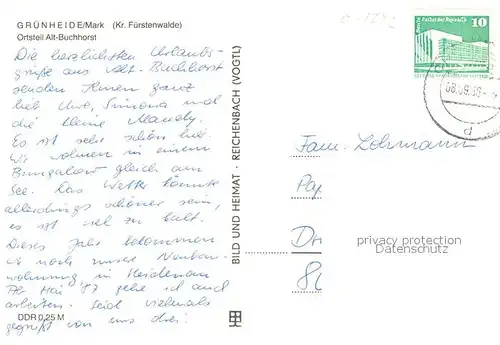 GRÜNHEIDE/Mark (Kr. Fürstenwalde)
Ortsteil Alt-Buchhorst
Die herzlichsten Urlaubs-
grüße aus Alt-Buchhorst
senden Ihnen ganz
lieb Uwe, Simona und
die kleine Mandy.
Es ist sehr schön hier.
Wir wohnen in einem
Bungalow gleich am
See. Das Wetter könnte
allerdings schöner sein,
es ist viel zu kalt.
Dieses Jahr bekommen
wir noch unsre Neubau-
wohnung in Heidenau
Ab Mai '87 gehe ich auch
arbeiten. Seid vielmals
gegrüßt von uns drei!
DDR 0,25 M
BILD UND HEIMAT · REICHENBACH (VOGTL)
Berlin Palast der Republik
10
Fam. Lohmann
Pap
Dr
privacy protection
Datenschutz